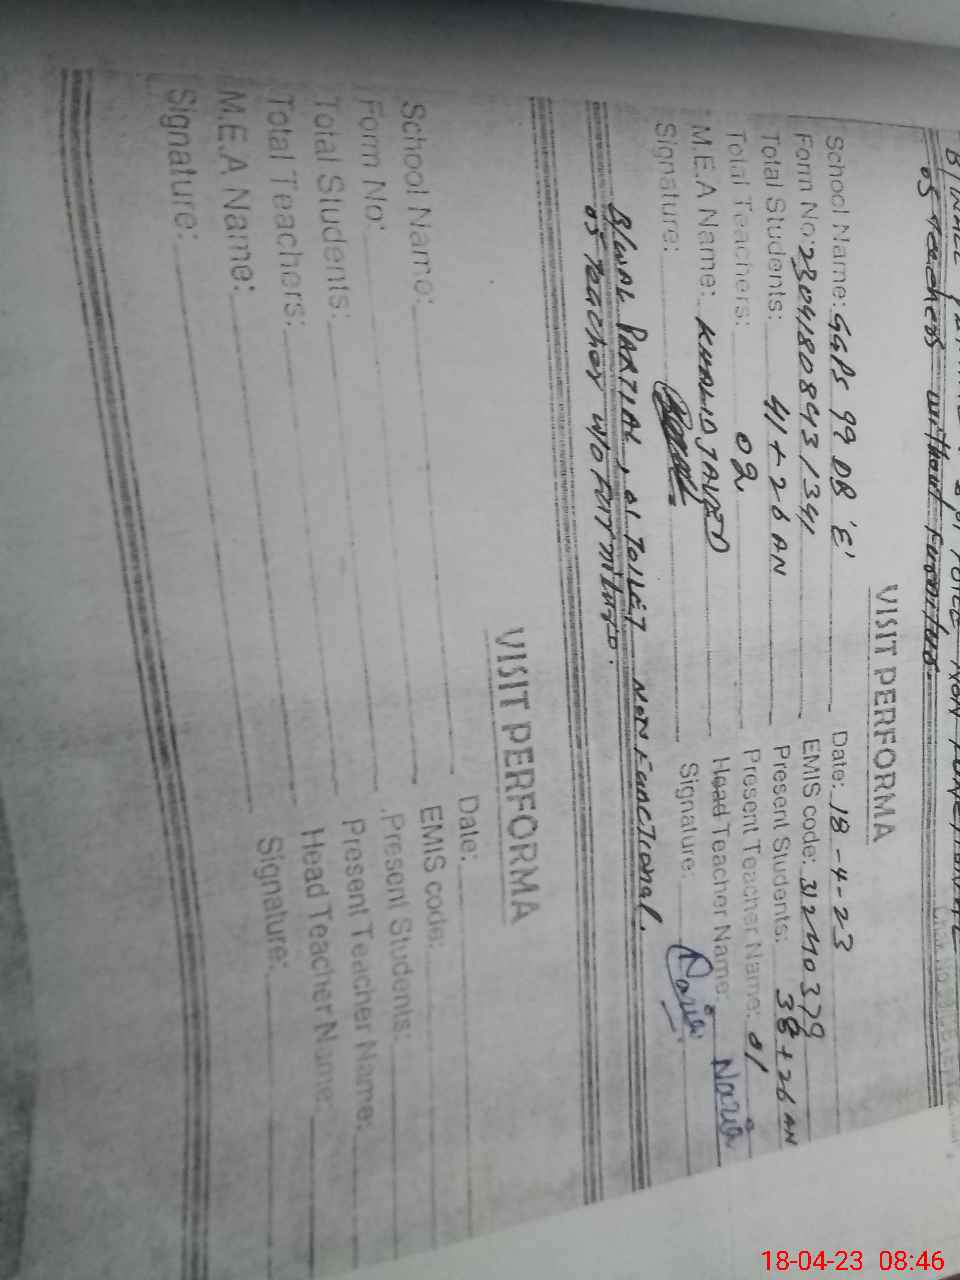 05 teachers without furniture.
VISIT PERFORMA
School Name: GGPS 99 DB 'E' Date: 18-4-23
Form No: 23041808431341 EMIS code: 31240379
Total Students: 41+26 AN Present Students: 38+26 AN
Total Teachers: 02 Present Teacher Name: 01
M.E.A Name: KHALID JAVED Head Teacher Name: Nazia
Signature: Signature: Nazia
B/WAL PARTIAL, 01 TOILET NON FUNCTIONAL.
05 TEACHER W/O FURNITURE.
VISIT PERFORMA
School Name: Date:
Form No: EMIS code:
Total Students: Present Students:
Total Teachers: Present Teacher Name:
M.E.A Name: Head Teacher Name:
Signature: Signature:
18-04-23 08:46